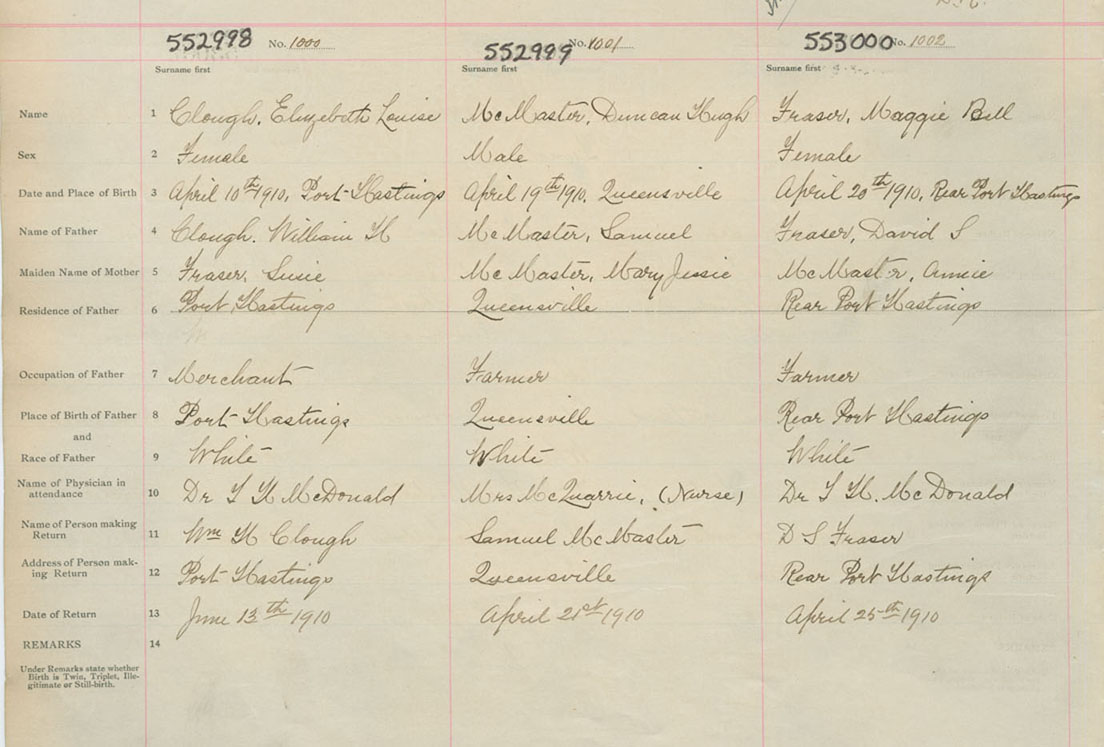 552998 No. 1000 552999 No. 1001 553000 No. 1002
Surname first Surname first Surname first
Name 1 Clough, Elizebeth Louise McMaster, Duncan Hugh Fraser, Maggie Bell
Sex 2 Female Male Female
Date and Place of Birth 3 April 10th 1910, Port Hastings April 19th 1910, Queensville April 20th 1910, Rear Port Hastings
Name of Father 4 Clough. William H McMaster, Samuel Fraser, David S
Maiden Name of Mother 5 Fraser, Susie McMaster, Mary Jessie McMaster, Annie
Residence of Father 6 Port Hastings Queensville Rear Port Hastings
Occupation of Father 7 Merchant Farmer Farmer
Place of Birth of Father 8 Port Hastings Queensville Rear Port Hastings
and
Race of Father 9 White White White
Name of Physician in
attendance 10 Dr McDonald Mrs McQuarrie, (Nurse) Dr McDonald
Name of Person making
Return 11 Wm H Clough Samuel McMaster D S Fraser
Address of Person mak-
ing Return 12 Port Hastings Queensville Rear Port Hastings
Date of Return 13 June 13th 1910 April 21st 1910 April 25th 1910
REMARKS 14
Under Remarks state whether
Birth is Twin, Triplet, Ille-
gitimate or Still-birth.